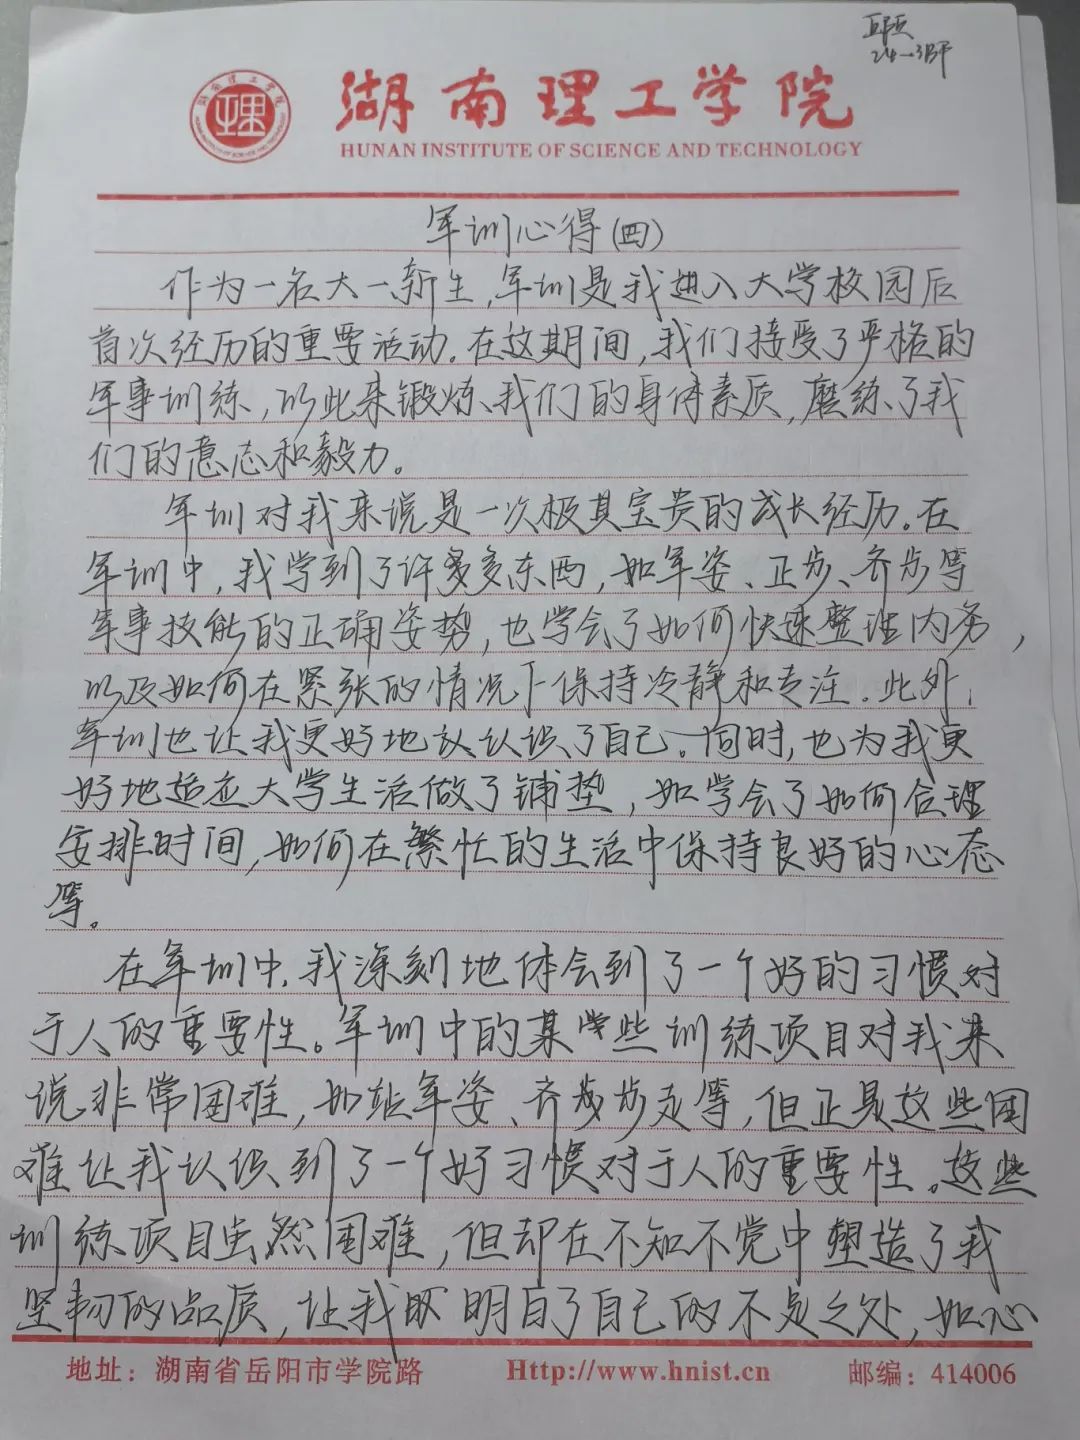 24-3BF
湖南理工学院
HUNAN INSTITUTE OF SCIENCE AND TECHNOLOGY
军训心得(四)
作为一名大一新生,军训是我进入大学校园后
首次经历的重要活动。在这期间,我们接受了严格的
军事训练,以此来锻炼我们的身体素质,磨练了我
们的意志和毅力。
军训对我来说是一次极其宝贵的成长经历。在
军训中,我学到了许多多东西,如军姿、正步、齐步等
军事技能的正确姿势,也学会了如何快速整理内务,
以及如何在紧张的情况下保持冷静和专注。此外,
军训也让我更好地认识了自己。同时,也为我更
好地适应大学生活做了铺垫,如学会了如何合理
安排时间,如何在繁忙的生活中保持良好的心态
等。
在军训中,我深刻地体会到了一个好的习惯对
于人的重要性。军训中的某些训练项目对我来
说非常困难,如站军姿、齐步步走等,但正是这些困
难让我认识到了一个好习惯对于人的重要性。这些
训练项目虽然困难,但却在不知不觉中塑造了我
坚韧的品质,让我明白了自己的不足之处,如心
地址:湖南省岳阳市学院路 Http://www.hnist.cn 邮编:414006